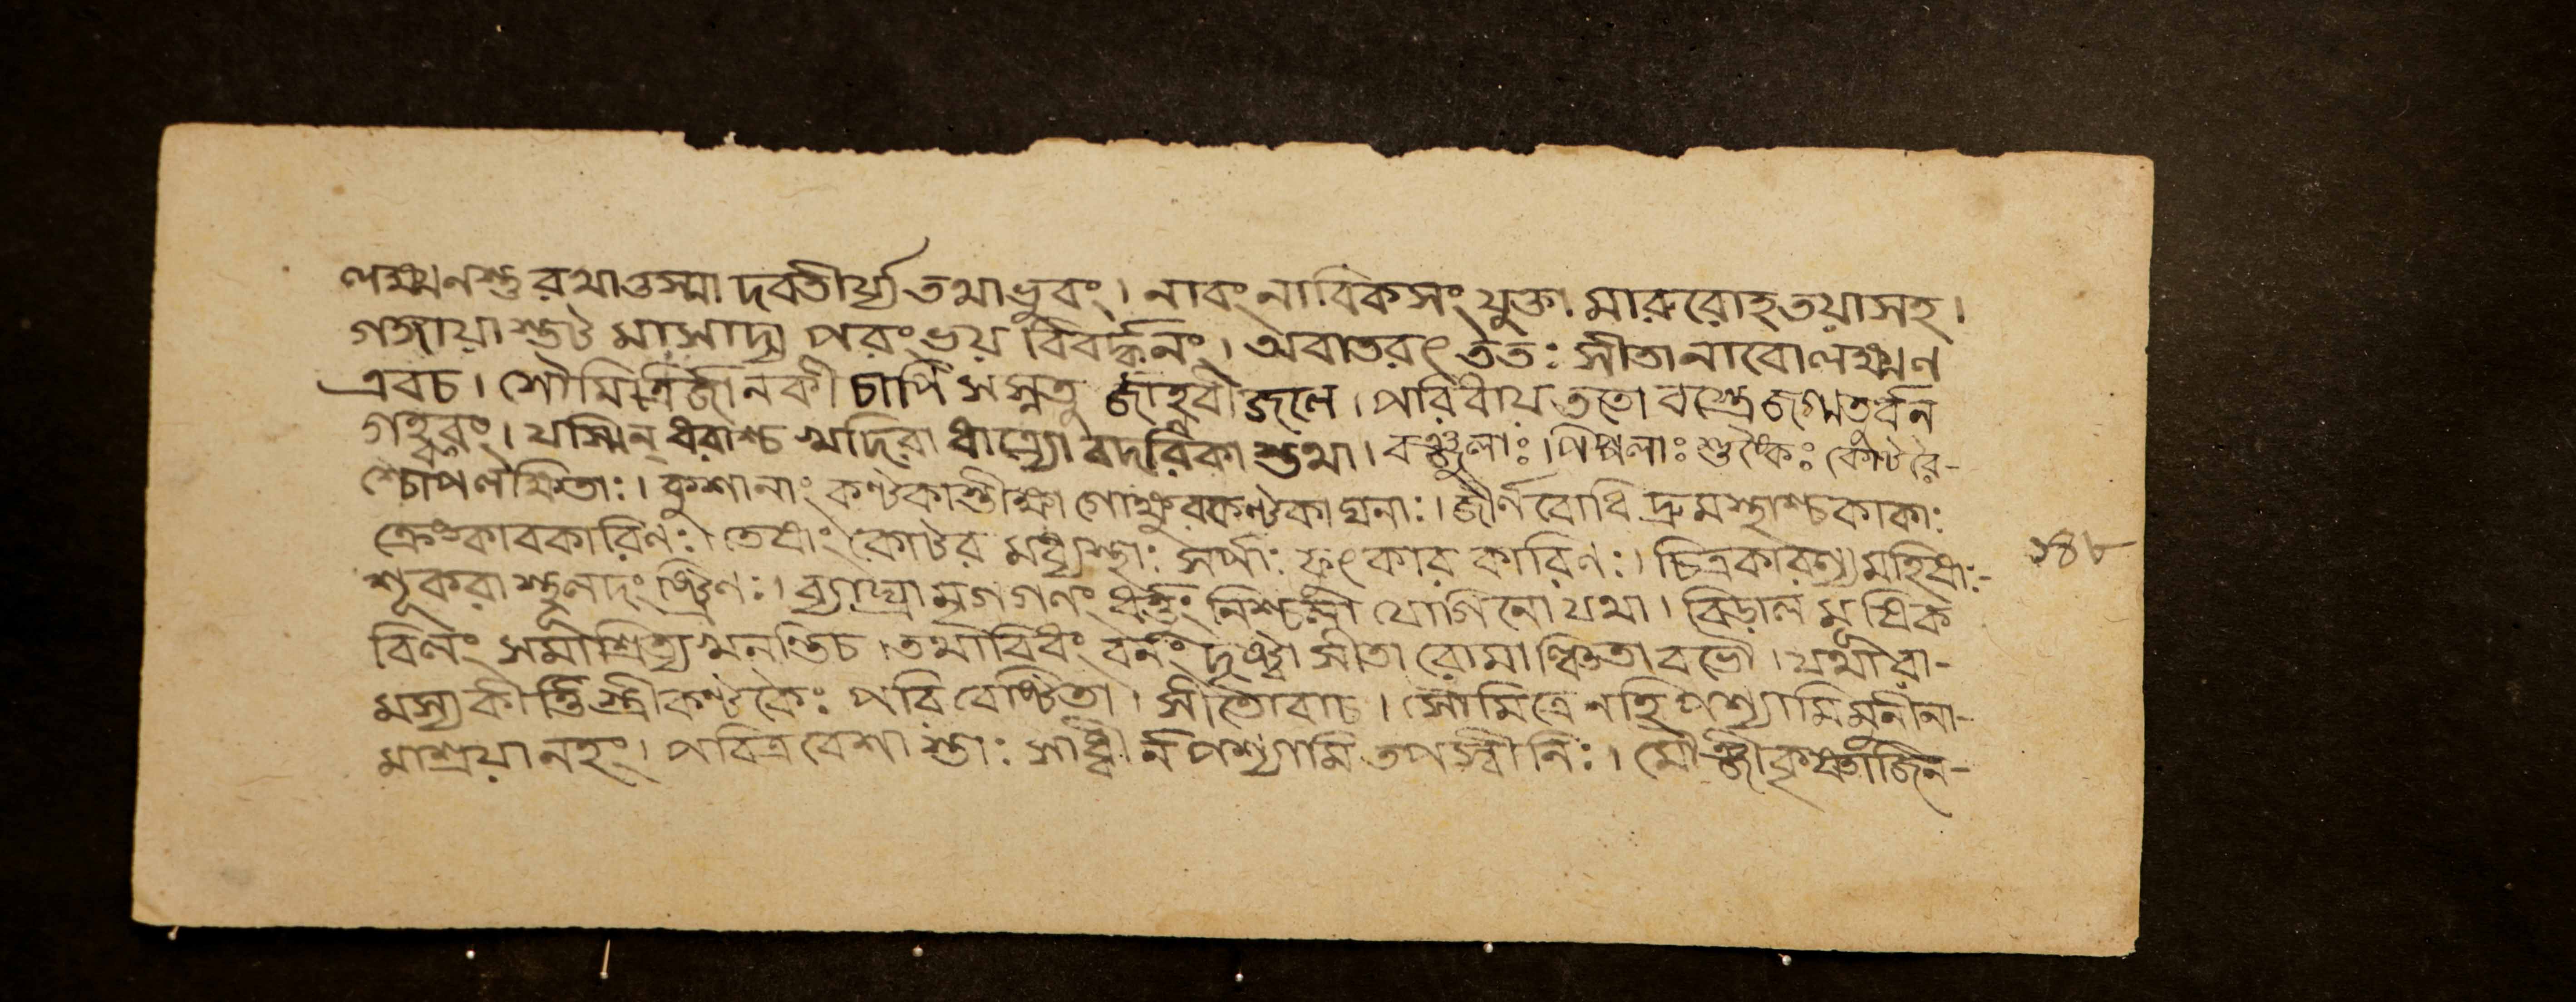 লক্ষ্মণস্তু রথাত্তস্মা দবতীর্য্য তথাধ্রুবং। নাবং নাবিকসং যুক্তা মারুরোহ তয়াসহ।
গঙ্গায়া স্তট মাসাদ্য পরং ভয় বিবর্দ্ধনং। অবাতরৎ ততঃ সীতা নাবো লক্ষ্মণ
এবচ। শৌমিত্রির্জানকী চাপি সস্নতু র্জাহ্নবী জলে। পরিধায় ততো বস্ত্রে জগ্মতুর্বন
গহ্বরং। যস্মিন্ ধবাশ্চ খদিরা ধাত্র্যো বদরিকা স্তথা। বঞ্জুলাঃ। পিপ্পলাঃ শুষ্কৈঃ কোটরৈ-
শ্চোপলক্ষিতাঃ। কুশানাং কণ্টকাস্তীক্ষ্ণা গোক্ষুরকণ্টকা ঘনাঃ। জীর্ণবোধি দ্রুমস্থাশ্চ কাকাঃ
ক্রেঙ্কারকারিণঃ। তেষাং কোটর মধ্যস্থাঃ সর্পাঃ ফুৎকার কারিণঃ। চিত্রকারণ্য মহিষাঃ- ১৪৮
শূকরা স্থূলদংষ্ট্রিণঃ। ব্যাঘ্রা মৃগগণং ধর্ত্তুং নিশ্চলা যোগিনো যথা। বিড়াল মূষিক
বিলং সমাশ্রিত্য খনন্তিচ। তথাবিধং বনং দৃষ্ট্বা সীতা রোমাঞ্চিতা বভৌ। যথা রা-
মস্য কীর্ত্তিস্ত্রী কণ্টকৈঃ পরিবেষ্টিতা। সীতোবাচ। সৌমিত্রে নহি পশ্যামি মুনীনা-
মাশ্রয়ানহং। পবিত্র বেশা স্তাঃ সাধ্বী র্নপশ্যামি তপস্বীনিঃ। মৌঞ্জীকৃষ্ণাজিন-